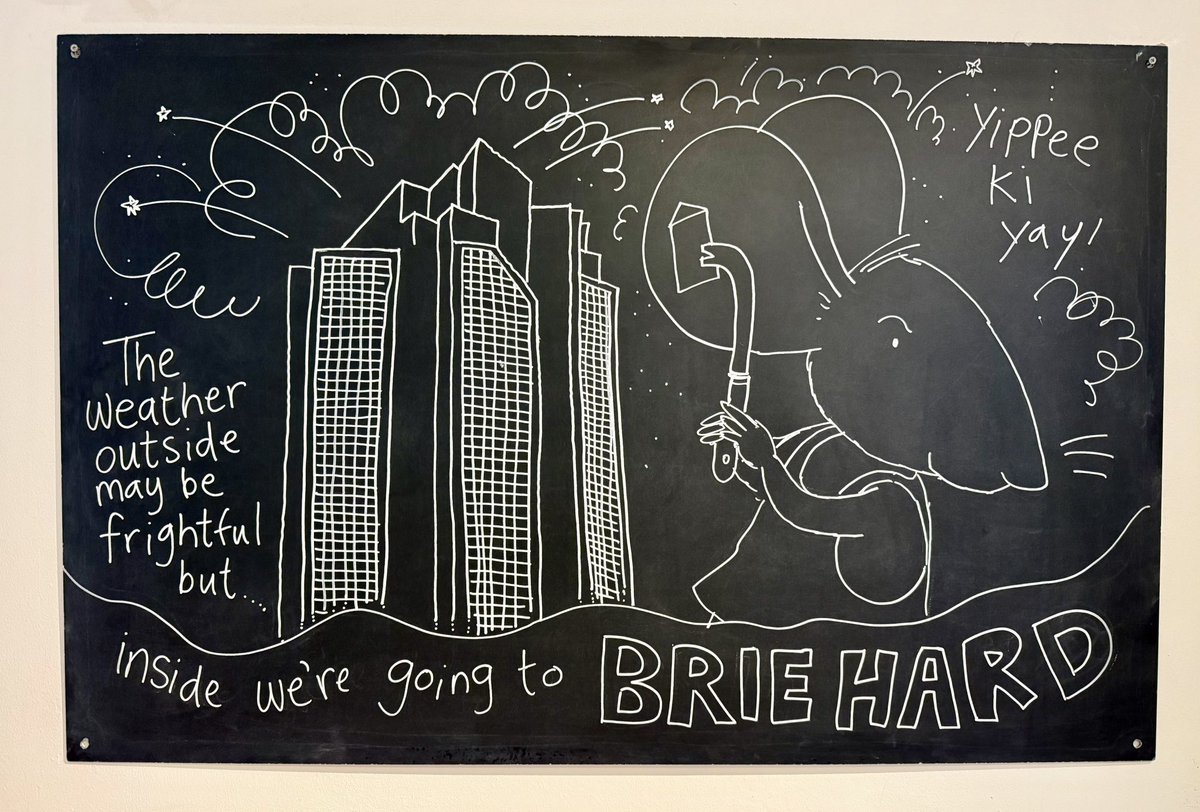 The
weather
outside
may be
frightful
but....
inside we're going to BRIE HARD
Yippee
Ki
yay!